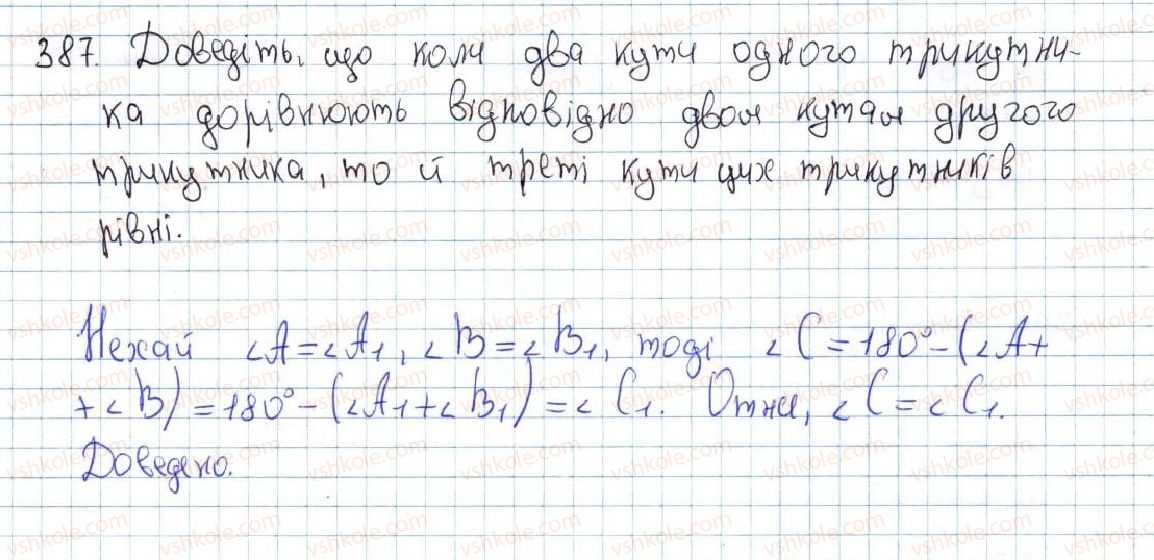 387. Доведіть, що коли два кути одного трикутни-
ка дорівнюють відповідно двом кутам другого
трикутника, то й треті кути цих трикутників
рівні.
Нехай ∠A=∠A₁, ∠B=∠B₁, тоді ∠C=180°-(∠A+
+∠B)=180°-(∠A₁+∠B₁)=∠C₁. Отже, ∠C=∠C₁.
Доведено.